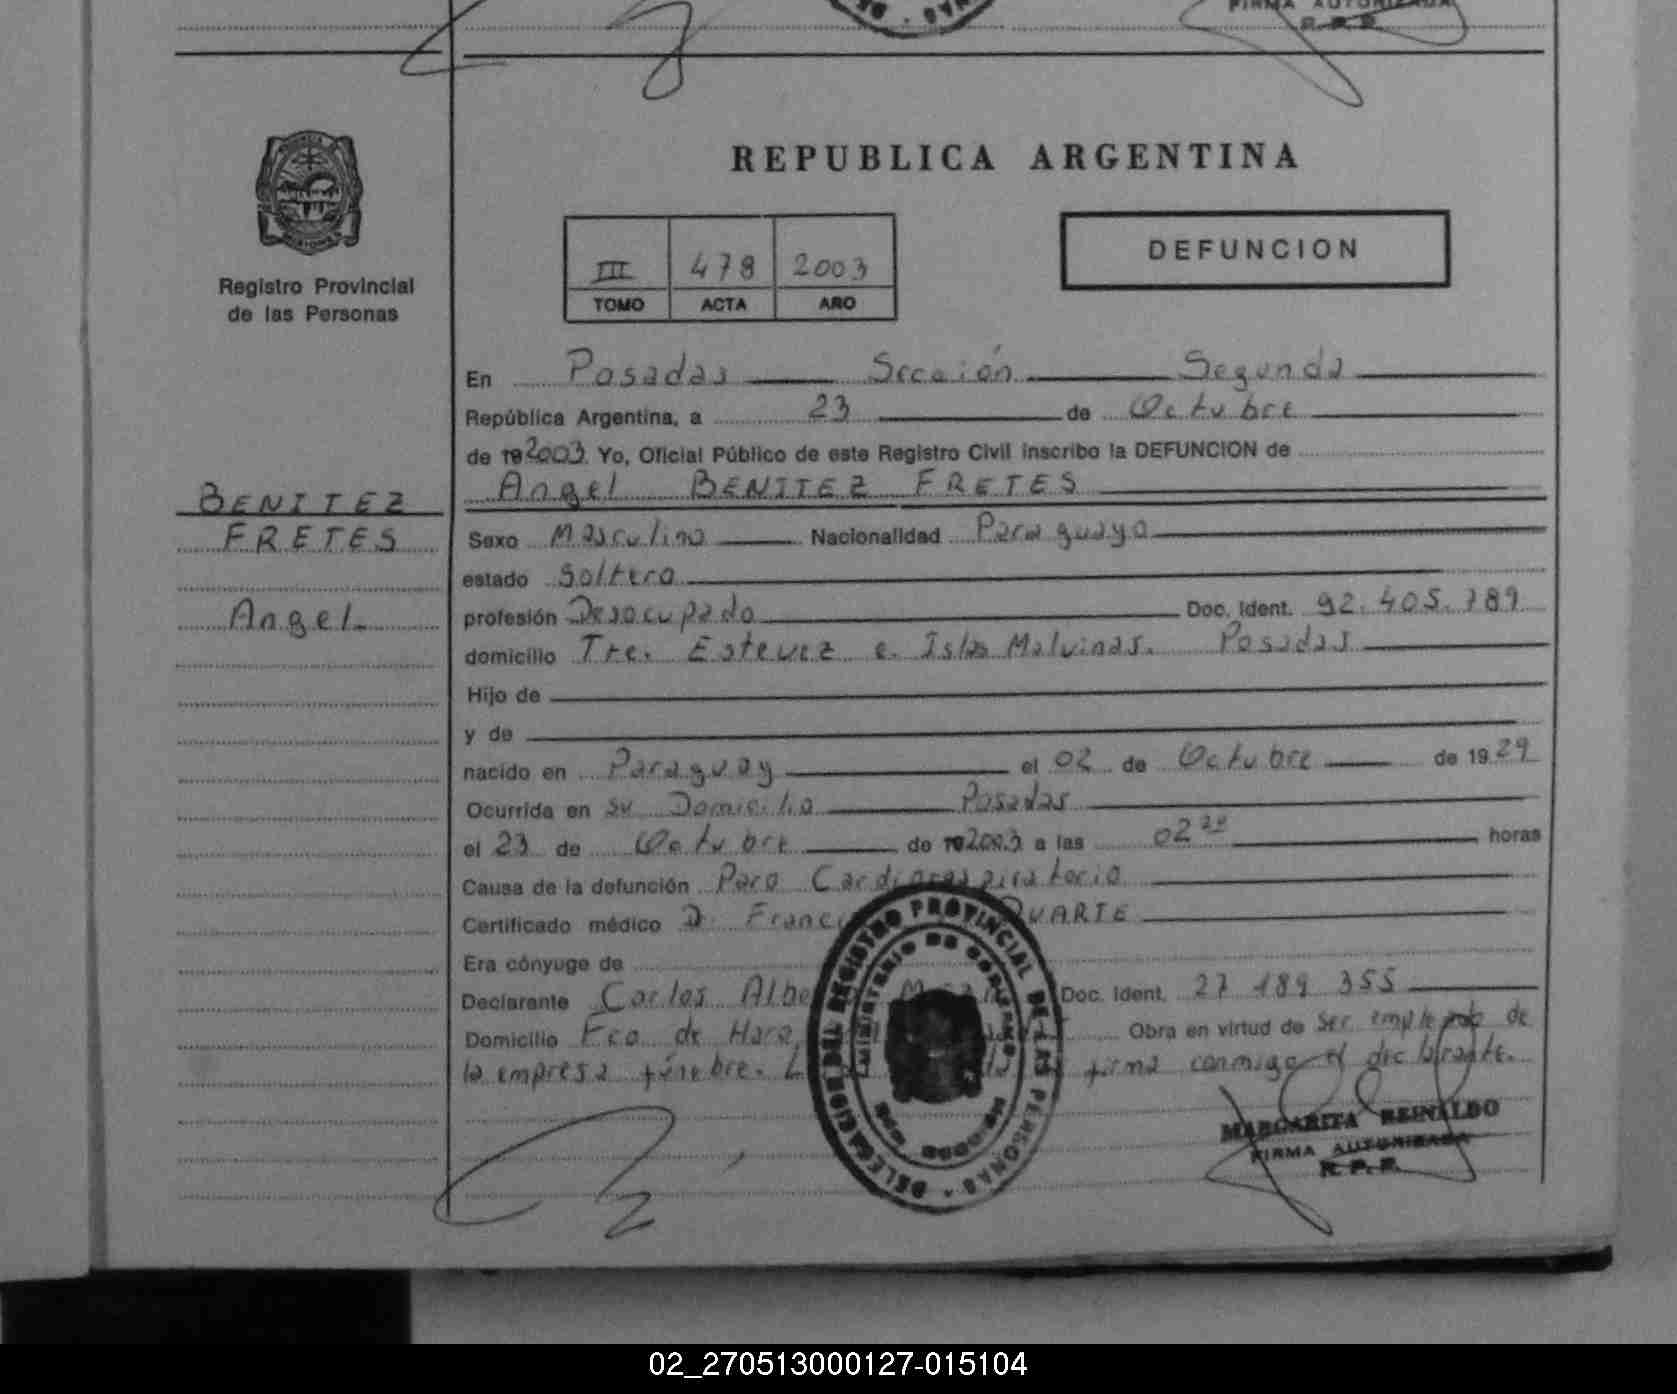 FIRMA AUTORIZADA
R. P. P.
REPUBLICA ARGENTINA
DEFUNCION
III 478 2003
TOMO ACTA AÑO
Registro Provincial
de las Personas
En Posadas Sección Segunda
República Argentina, a 23 de Octubre
de 192003. Yo, Oficial Público de este Registro Civil inscribo la DEFUNCION de
Angel BENITEZ FRETES
BENITEZ
FRETES
Angel
Sexo Masculino Nacionalidad Paraguayo
estado Soltero
profesión Desocupado Doc. Ident. 92.405.789
domicilio Tte. Estevez e. Islas Malvinas. Posadas
Hijo de
y de
nacido en Paraguay el 02 de Octubre de 1929
Ocurrida en su Domicilio Posadas
el 23 de Octubre de 192003 a las 02 horas
Causa de la defunción Paro Cardiorespiratorio
Certificado médico D. DUARTE
Era cónyuge de
Declarante Carlos Doc. Ident. 27 189 355
Domicilio Fco. de Haro, Obra en virtud de ser empleado de
la empresa fúnebre. firma conmigo el declarante.
DELEGACION DEL REGISTRO PROVINCIAL DE LAS PERSONAS
MINISTERIO DE GOBIERNO
MARGARITA REINALDO
FIRMA AUTORIZADA
R. P. P.
02_270513000127-015104